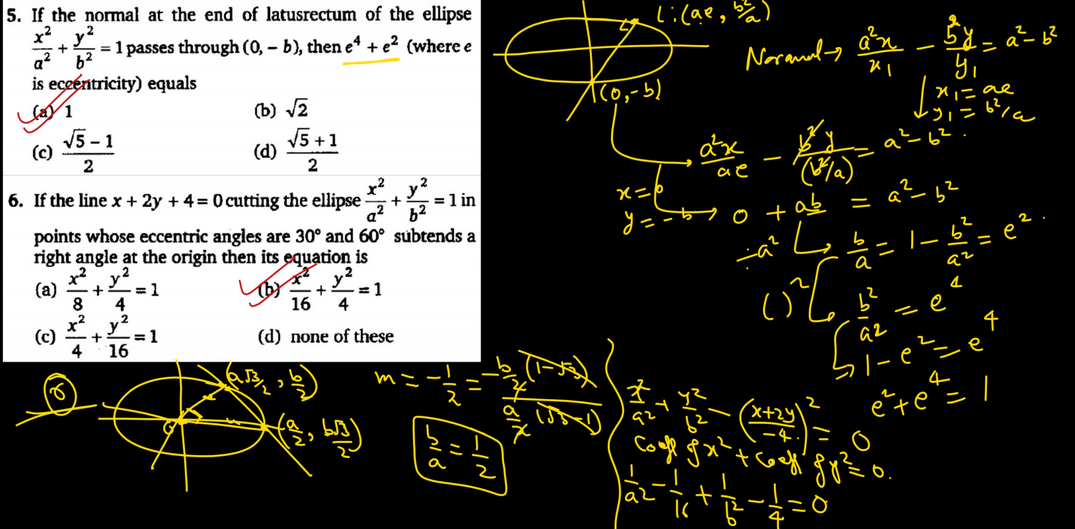 5. If the normal at the end of latusrectum of the ellipse
x²/a² + y²/b² = 1 passes through (0, – b), then e⁴ + e² (where e
is eccentricity) equals
(a) 1 (b) √2
(c) (√5 – 1)/2 (d) (√5 + 1)/2
6. If the line x + 2y + 4 = 0 cutting the ellipse x²/a² + y²/b² = 1 in
points whose eccentric angles are 30° and 60° subtends a
right angle at the origin then its equation is
(a) x²/8 + y²/4 = 1 (b) x²/16 + y²/4 = 1
(c) x²/4 + y²/16 = 1 (d) none of these
L:(ae, b²/a)
(0,-b)
Normal → a²x/x₁ - b²y/y₁ = a²-b²
x₁ = ae
y₁ = b²/a
a²x/ae - b²y/(b²/a) = a²-b².
x=0
y=-b → 0 + ab = a²-b²
÷a² b/a = 1 - b²/a² = e².
( )² b²/a² = e⁴
1-e² = e⁴
e²+e⁴ = 1
(a√3/2, b/2)
(a/2, b√3/2)
m = -1/2 = b/2 (1-√3) / a/2 (√3-1)
b/a = 1/2
x²/a² + y²/b² - ((x+2y)/-4)² = 0
Coeff of x² + Coeff of y² = 0.
1/a² - 1/16 + 1/b² - 1/4 = 0